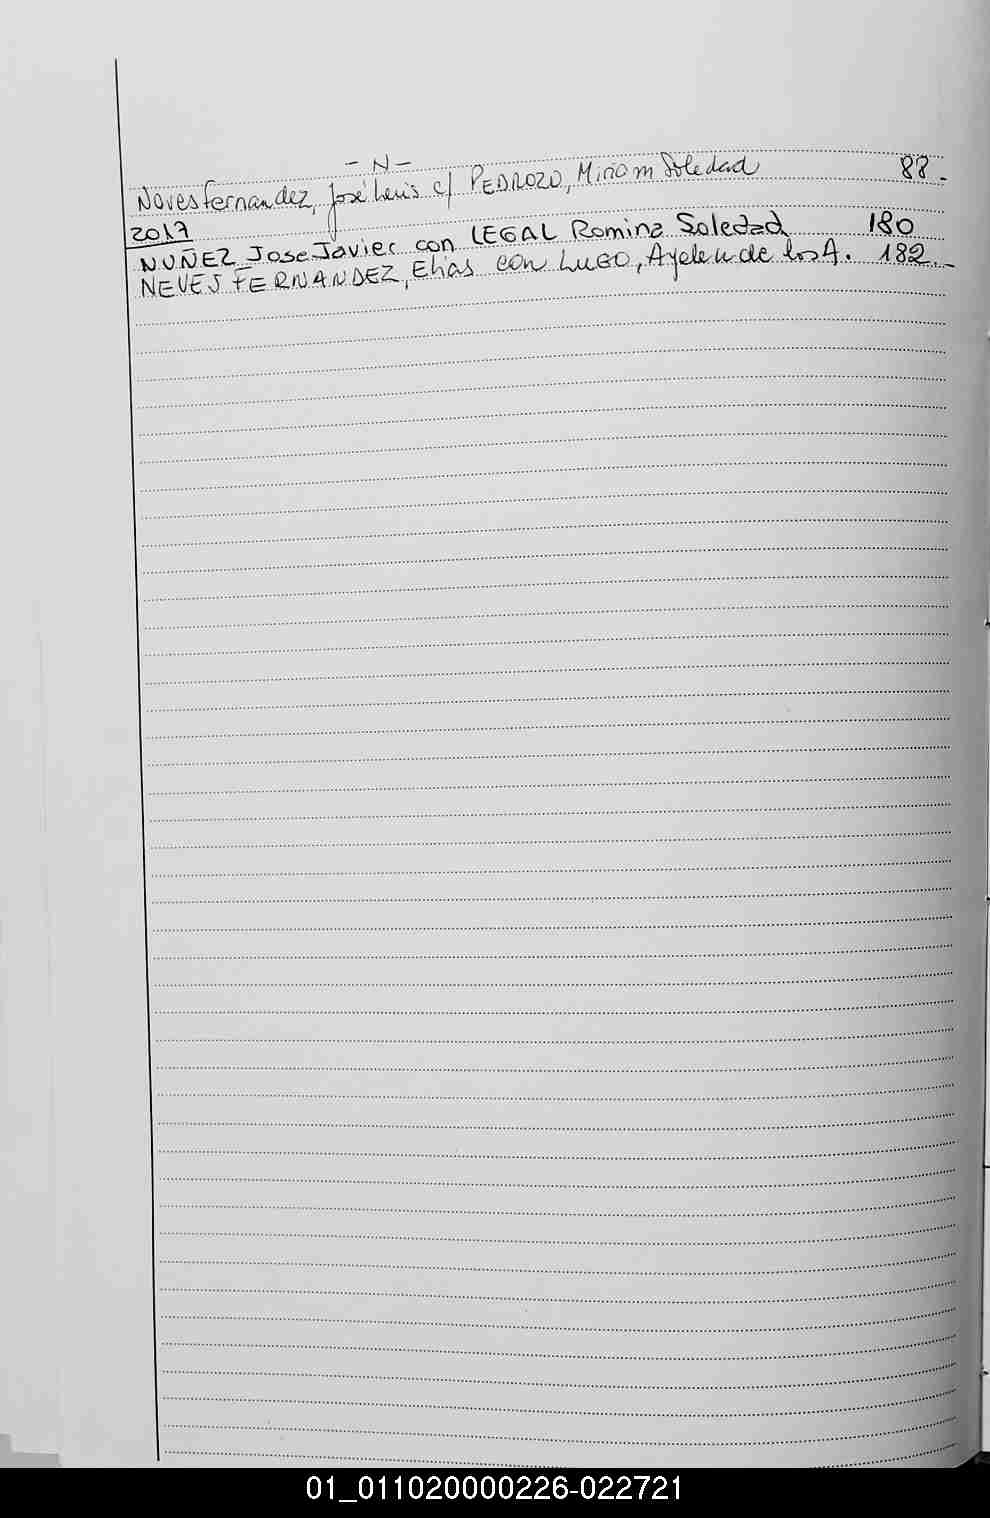 - N -
Noves Fernandez, José Luis c/ PEDROZO, Miriam Soledad 88.-
2017
NUÑEZ Jose Javier con LEGAL Romina Soledad 180
NEVES FERNANDEZ, Elias con LUGO, Ayelen de los A. 182.-
01_011020000226-022721